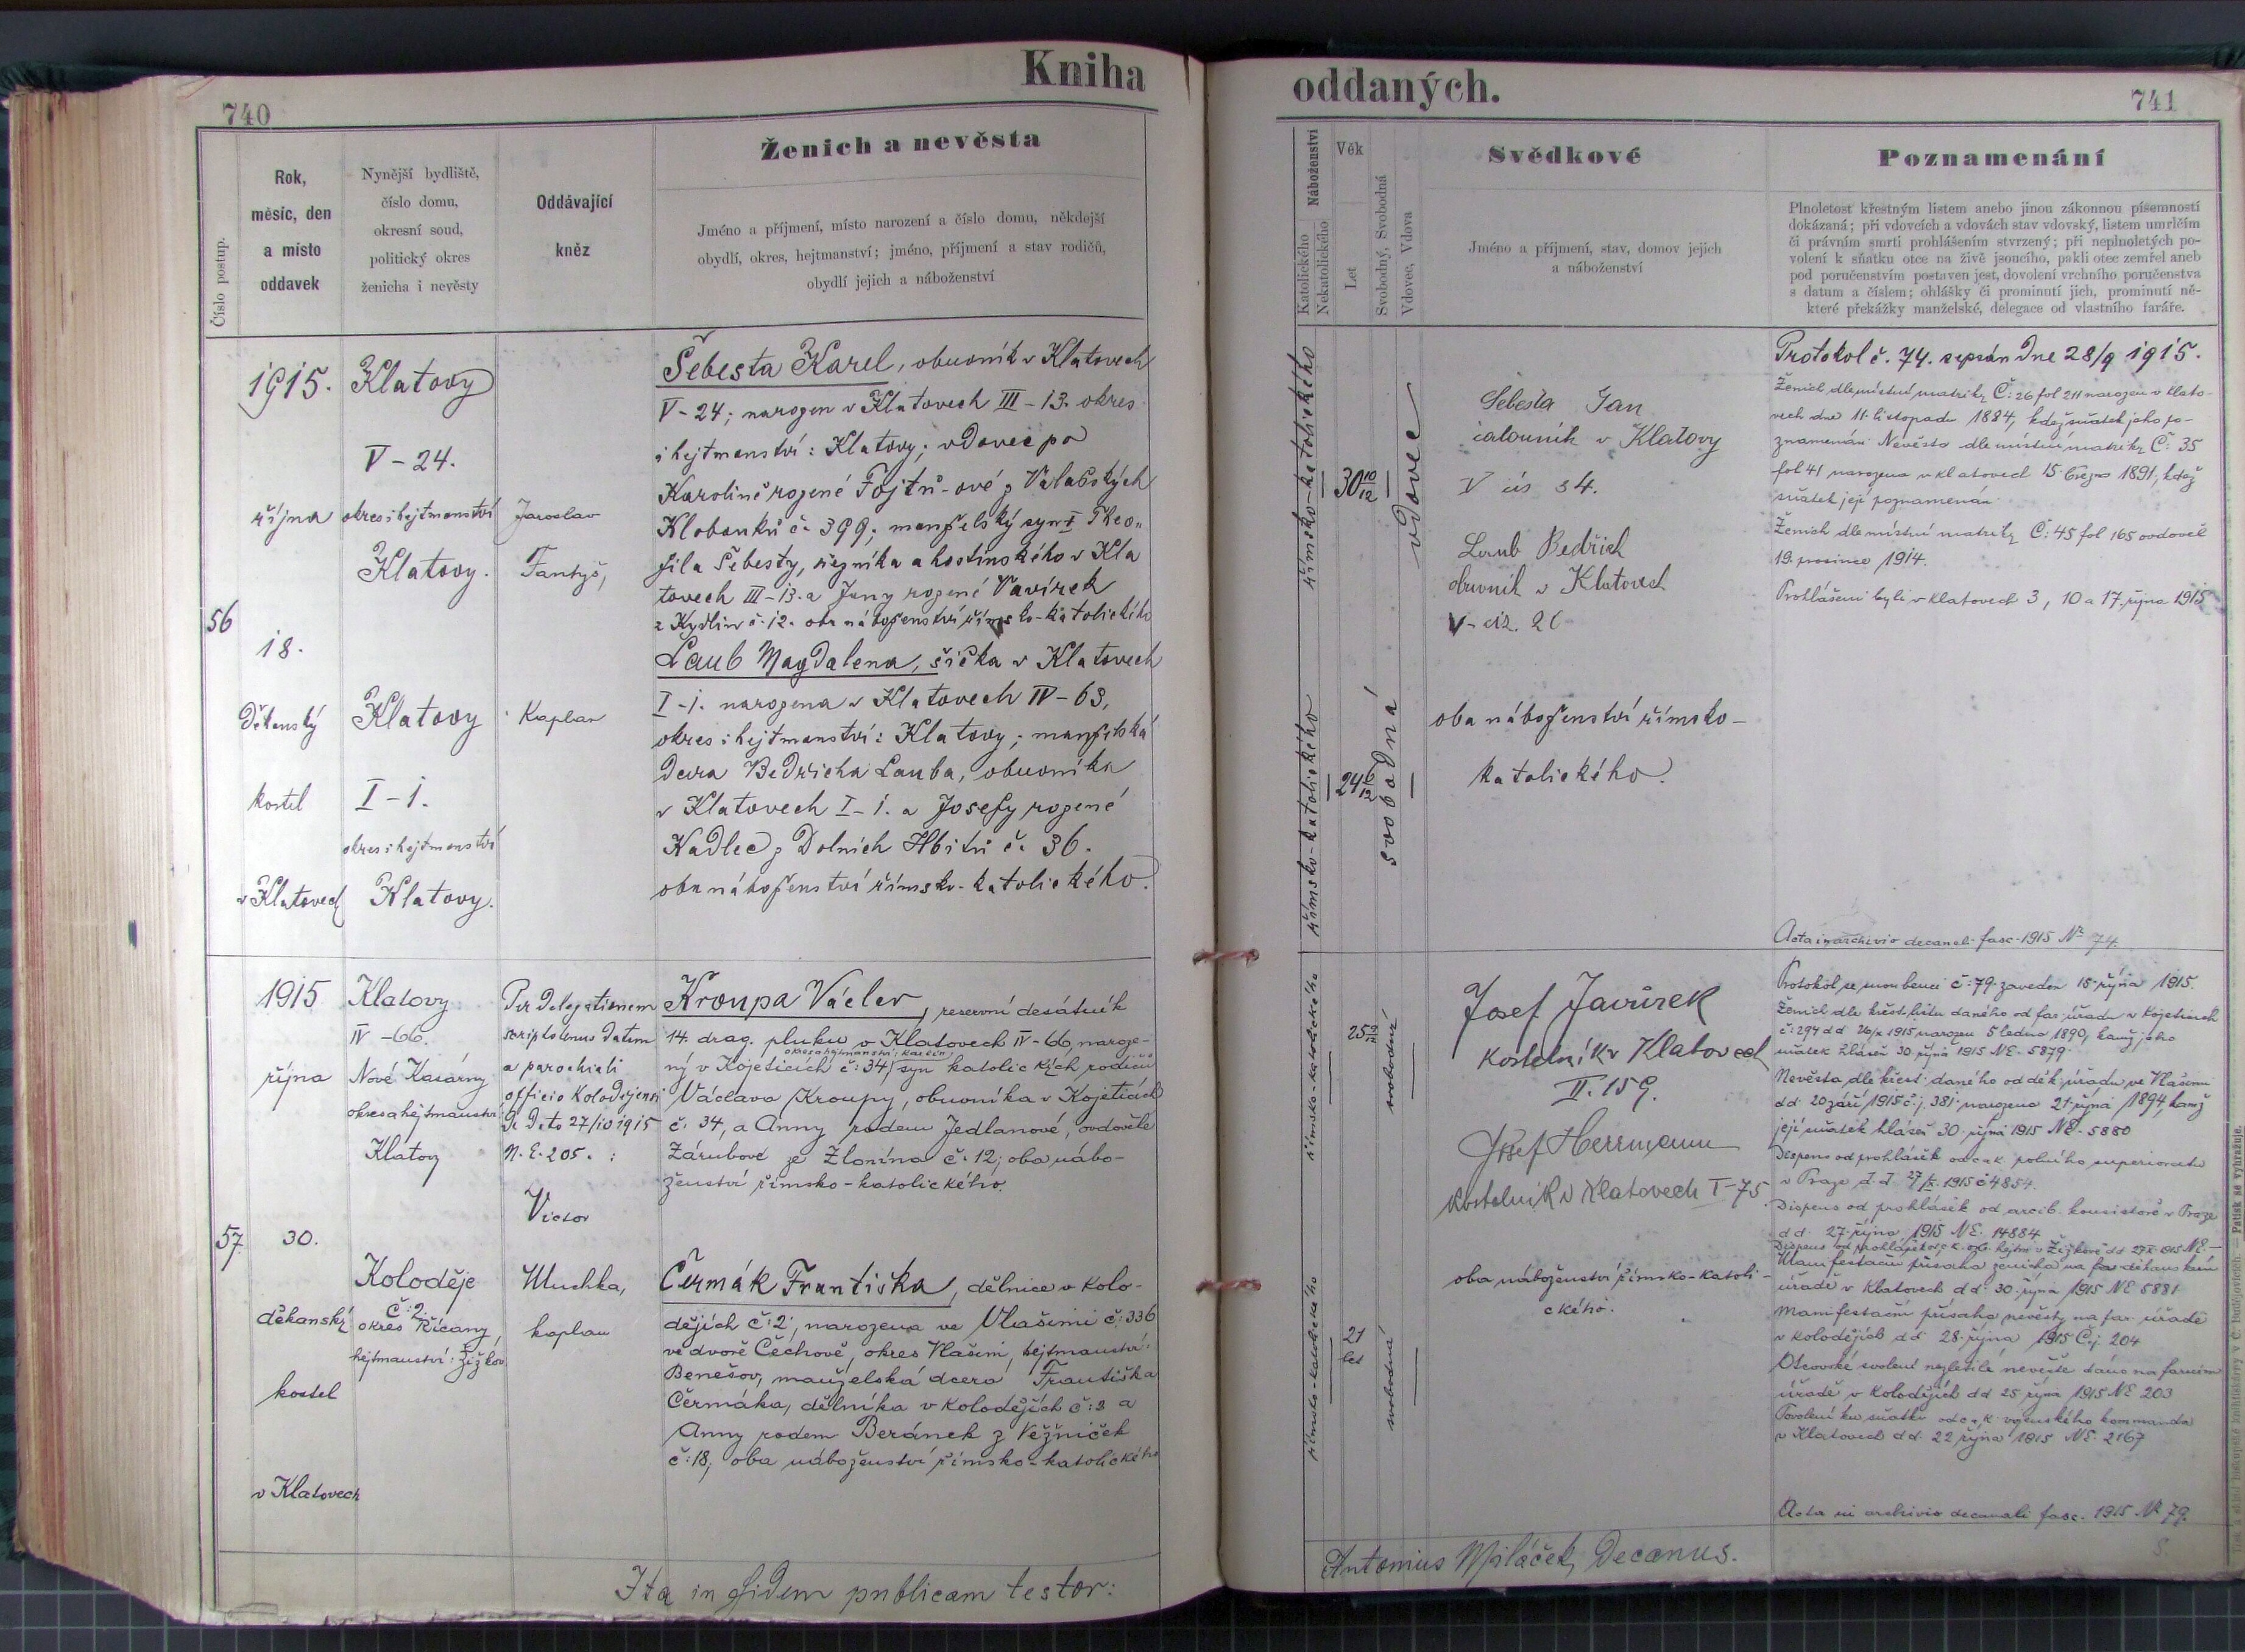 Kniha
oddaných.
740
741
Číslo postup.
Rok,
měsíc, den
a místo
oddavek
Nynější bydliště,
číslo domu,
okresní soud,
politický okres
ženicha i nevěsty
Oddávající
kněz
Ženich a nevěsta
Jméno a příjmení, místo narození a číslo domu, někdejší
obydlí, okres, hejtmanství; jméno, příjmení a stav rodičů,
obydlí jejich a náboženství
Náboženství
Katolického
Nekatolického
Věk
Let
Svobodný, Svobodná
Vdovec, Vdova
Svědkové
Jméno a příjmení, stav, domov jejich
a náboženství
Poznamenání
Plnoletost křestným listem anebo jinou zákonnou písemností
dokázaná; při vdovcích a vdovách stav vdovský, listem umrlčím
či právním smrti prohlášením stvrzený; při neplnoletých po-
volení k sňatku otce na živě jsoucího, pakli otec zemřel aneb
pod poručenstvím postaven jest, dovolení vrchního poručenstva
s datum a číslem; ohlášky či prominutí jich, prominutí ně-
které překážky manželské, delegace od vlastního faráře.
56
1915.
října
18.
Děkanský
kostel
v Klatovech
Klatovy
V-24.
okres i hejtmanství
Klatovy.
Klatovy
I-1.
okres i hejtmanství
Klatovy.
Jaroslav
Fantyš,
Kaplan
Šebesta Karel, obuvník v Klatovech
V-24; narozen v Klatovech III-13. okres
i hejtmanství: Klatovy; vdovec po
Karolině rozené Fojtů-ové z Valašských
Klobouků č. 399; manželský syn Theo-
fila Šebesty, řezníka a hostinského v Kla
tovech III-13. a Jany rozené Vavírek
z Kydlin č. 12. oba náboženství římsko-katolického
Laub Magdalena, šička v Klatovech
I-1. narozena v Klatovech IV-63,
okres i hejtmanství: Klatovy; manželská
dcera Bedřicha Lauba, obuvníka
v Klatovech I-1. a Josefy rozené
Kadlec z Dolních Hbitů č. 36.
oba náboženství římsko-katolického.
římsko-katolického
30 10/12
vdovec
římsko-katolického
24 6/12
svobodná
Šebesta Jan
čalouník v Klatovy
V čís 34.
Laub Bedřich
v Klatovech
oba náboženství římsko-
katolického.
Protokol č. 74. sepsán dne 28/9 1915.
Ženich dle místní matriky Č: 26 fol 211 narozen v Klato-
vech dne 11. listopadu 1884, kdež sňatek jeho po-
znamenán Nevěsta dle místní matriky Č: 35
fol 41 narozena v Klatovech 15. 1891, kdež
sňatek její poznamenán.
Ženich dle místní matriky Č: 45 fol 165 ovdověl
19. prosince 1914.
Prohlášeni byli v Klatovech 3, 10 a 17. října 1915
Acta in archivio decanali fasc. 1915 № 74.
57
1915
října
30.
děkanský
kostel
v Klatovech
Klatovy
IV-66.
Nové Kasárny
okres a hejtmanství
Klatovy
Koloděje
č: 2.
okres Říčany,
hejtmanství: Žižkov
Per delegationem
scripto tenus datam
a parochiali
officio Kolodějensi
De Dato 27/10 1915
N. E. 205.
Victor
kaplan
Kroupa Václav, reservní desátník
14. drag. pluku v Klatovech IV-66, naroze-
okres a hejtmanství: Karlín
ný v Kojeticích č: 34, syn katolických rodičů
Václava Kroupy, obuvníka v Kojeticích
č. 34, a Anny rodem Jedlanové, ovdovělé
Zárubové ze Zlonína č. 12; oba nábo-
ženství římsko-katolického.
Čermák Františka, dělnice v Kolo-
dějích č: 2, narozena ve Vlašimi č: 336
ve dvoře Čechově, okres Vlašim, hejtmanství:
Benešov, manželská dcera Františka
Čermáka, dělníka v Kolodějích č: 2 a
Anny rodem Beránek z Věžniček
č: 18; oba náboženství římsko-katolického
římsko-katolického
svobodný
římsko-katolického
21
let
svobodná
Josef Javůrek
kostelník v Klatovech
II. 159.
Josef Herrmann
kostelník v Klatovech I-75.
oba náboženství římsko-katoli-
ckého.
Protokol se snoubenci č: 79. zaveden 15. října 1915.
Ženich dle křest. listu daného od far. úřadu v Kojeticích
č: 294 dd 1915 narozen 5 ledna 1890, kamž jeho
sňatek hlášen 30 října 1915 NE. 5879.
Nevěsta dle křest. daného od děk. úřadu ve Vlašimi
dd. 20 září 1915 č. j. 381 narozena 21. října 1894, kamž
její sňatek hlášen 30. října 1915 NE. 5880
Dispens od prohlášek od c. a k. polního superiorátu
v Praze d. d. 27/X. 1915 č 4854.
Dispens od prohlášek od arcib. konsistoře v Praze
dd. 27. října 1915 NE. 14884
Manifestační přísaha ženicha na far děkanském
úřadě v Klatovech dd. 30. října 1915 NE 5881
Manifestační přísaha nevěsty na far. úřadě
v Kolodějích dd 28. října 1915 Čj. 204
Otcovské svolení nezletilé nevěstě dáno na farním
úřadě v Kolodějích dd 25 října 1915 NE 203
Povolení ku sňatku od c. a k. vojenského kommanda
v Klatovech dd. 22 října 1915 NE. 2167
Acta in archivio decanali fasc. 1915 № 79.
Ita in fidem publicam testor:
Antonius Miláček, Decanus.